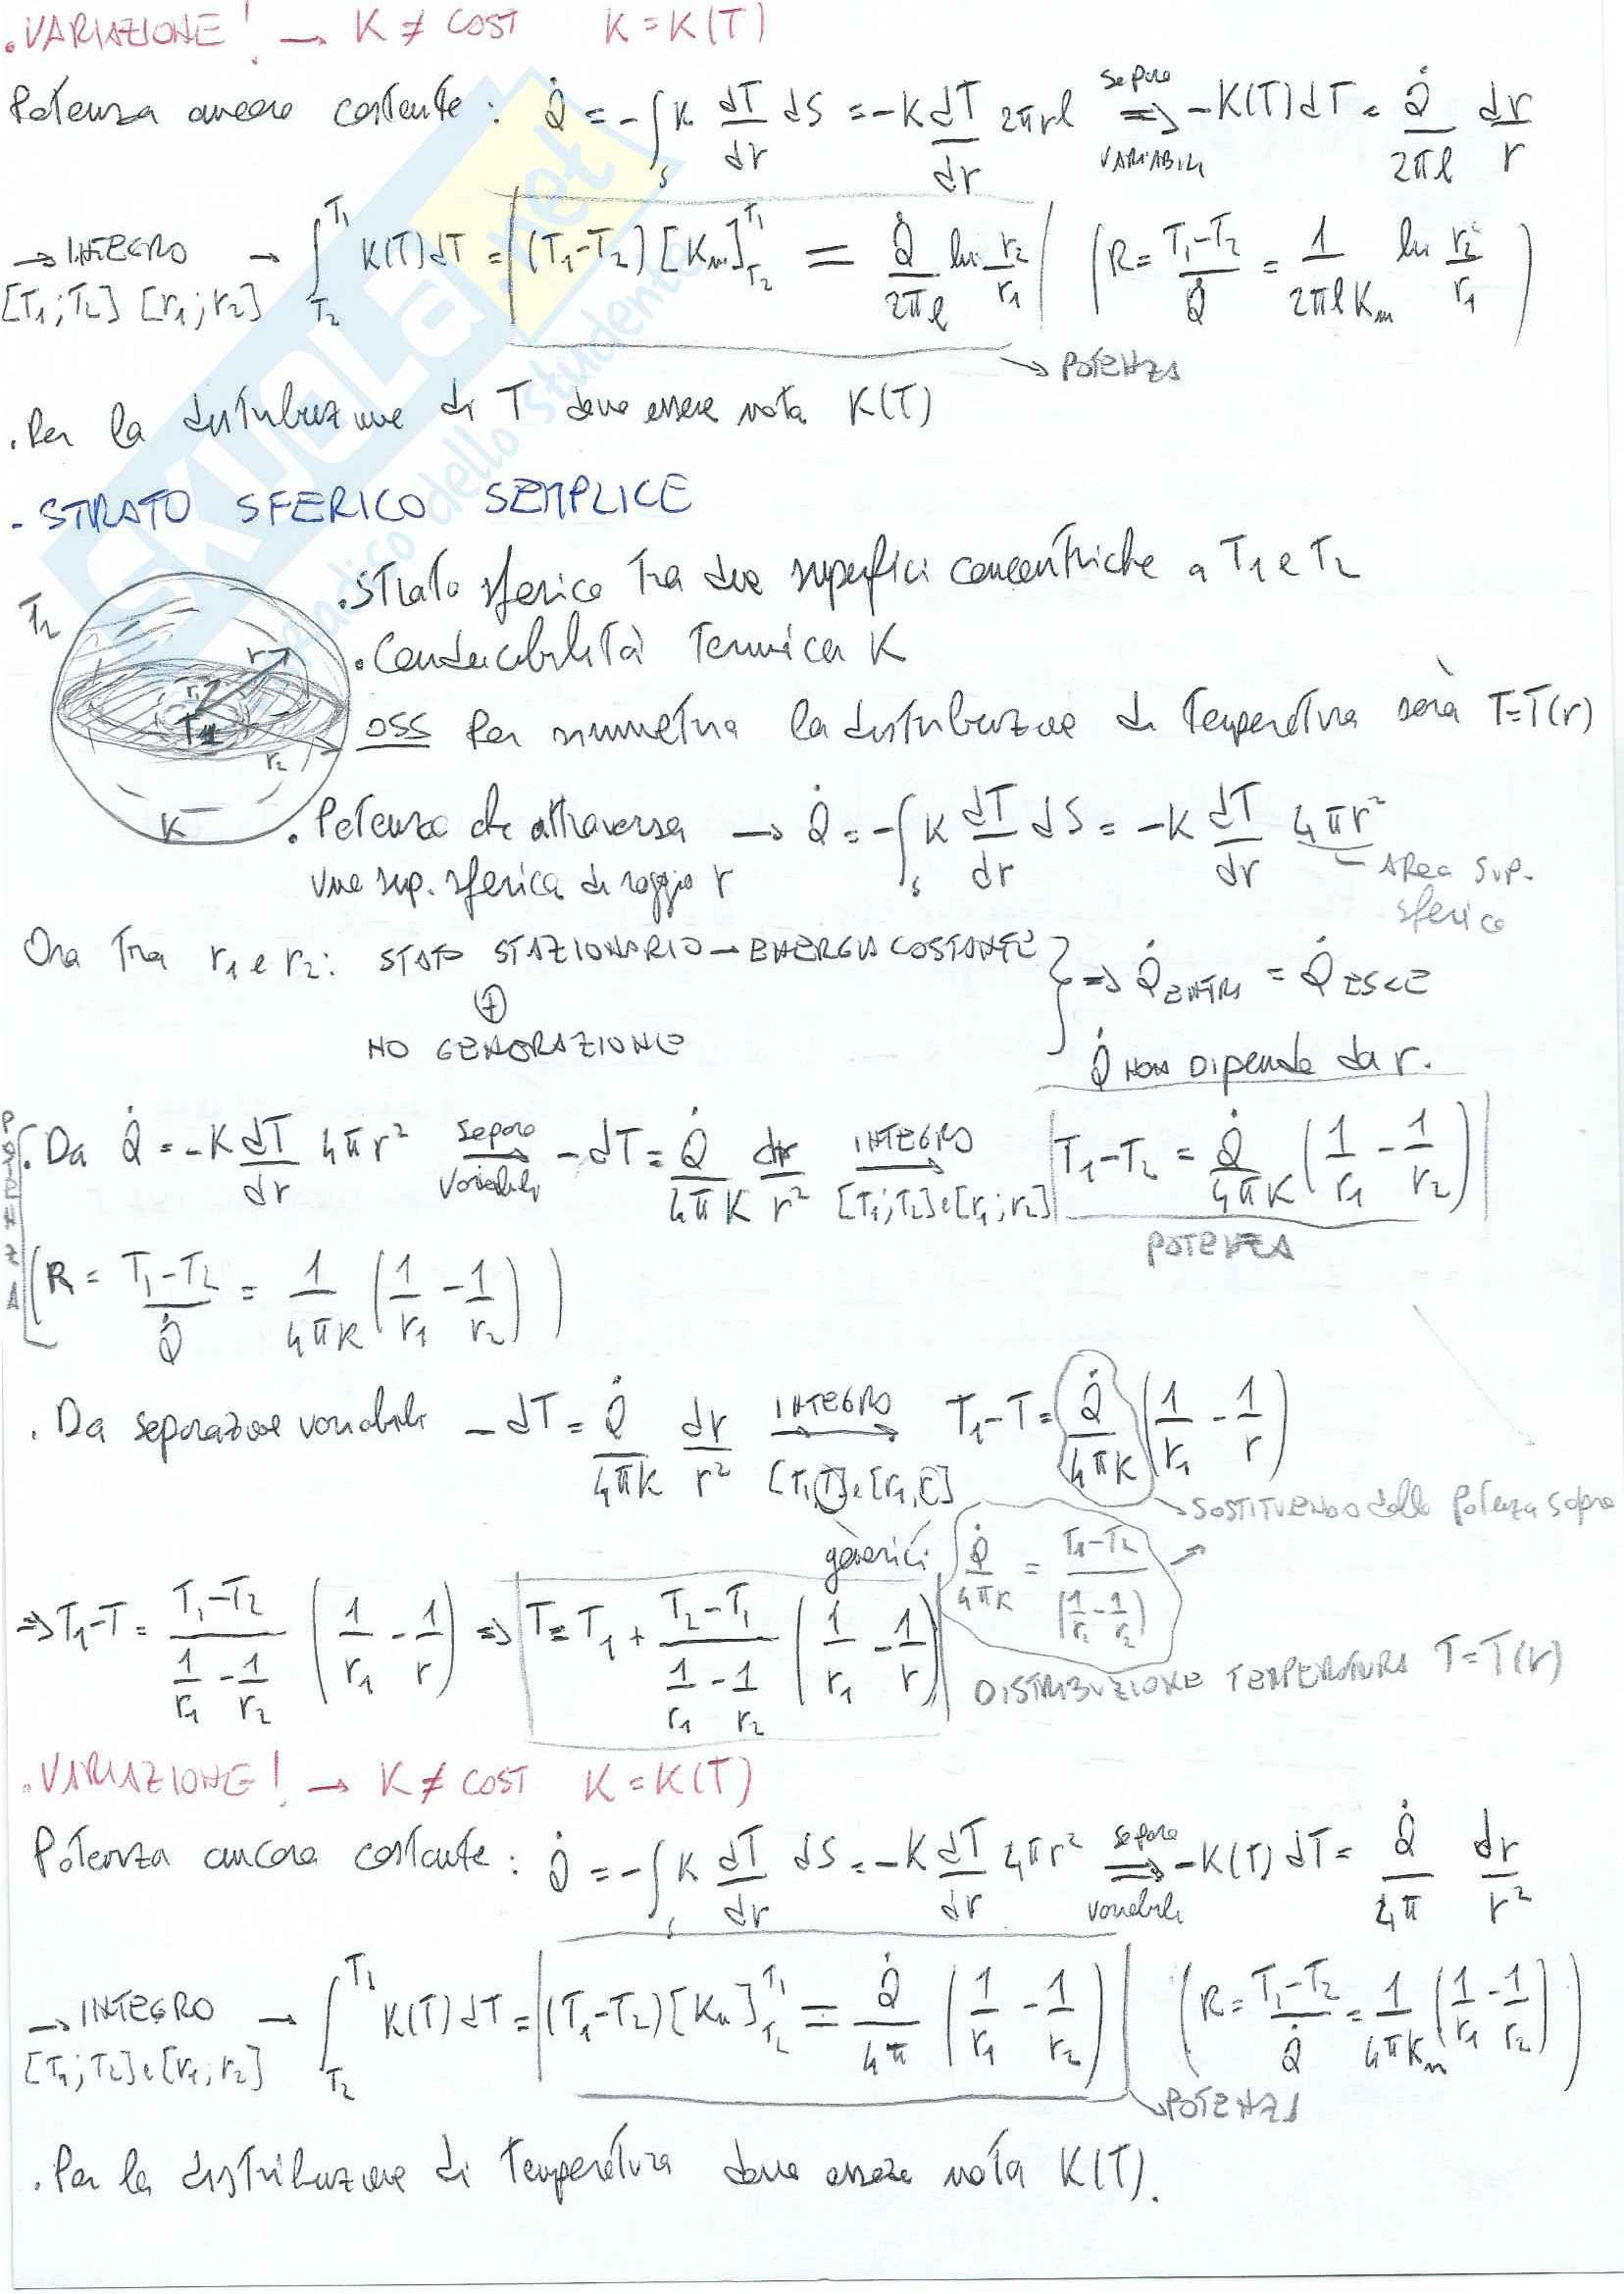 . VARIAZIONE! → K ≠ COST K = K(T)
Potenza ancora costante : Q̇ = -∫_S K dT/dr dS = -K dT/dr 2πrl ⇒ (separo VARIABILI) -K(T)dT = Q̇/2πl dr/r
→ INTEGRO [T₁;T₂] [r₁;r₂] → ∫_{T₂}^{T₁} K(T)dT = (T₁-T₂)[Km]_{T₂}^{T₁} = Q̇/2πl ln r₂/r₁ (R = T₁-T₂/Q̇ = 1/2πlKm ln r₂/r₁)
→ POTENZA
. Per la distribuzione di T deve essere nota K(T)
- STRATO SFERICO SEMPLICE
. Strato sferico tra due superfici concentriche a T₁ e T₂
. Conducibilità Termica K
OSS Per simmetria la distribuzione di temperatura sarà T=T(r)
T₂ r r₁ T₁ r₂ K
. Potenza che attraversa una sup. sferica di raggio r → Q̇ = -∫_S K dT/dr dS = -K dT/dr 4πr²
AREA SUP. sferica
Ora tra r₁ e r₂ : STATO STAZIONARIO → ENERGIA COSTANTE
⊕
NO GENERAZIONE
} ⇒ Q̇ ENTRA = Q̇ ESCE
Q̇ NON DIPENDE da r.
POTENZA
. Da Q̇ = -K dT/dr 4πr² → (separo variabili) -dT = Q̇/4πK dr/r² → (INTEGRO [T₁;T₂] e [r₁;r₂]) T₁-T₂ = Q̇/4πK (1/r₁ - 1/r₂)
POTENZA
(R = T₁-T₂/Q̇ = 1/4πK (1/r₁ - 1/r₂))
. Da separazione variabili -dT = Q̇/4πK dr/r² → (INTEGRO [T₁,T] e [r₁,r]) T₁-T = Q̇/4πK (1/r₁ - 1/r)
generici
SOSTITUENDO dalla Potenza sopra
Q̇/4πK = T₁-T₂/(1/r₁ - 1/r₂)
⇒ T₁-T = T₁-T₂/(1/r₁ - 1/r₂) (1/r₁ - 1/r) ⇒ T = T₁ + T₂-T₁/(1/r₁ - 1/r₂) (1/r₁ - 1/r)
DISTRIBUZIONE TEMPERATURA T=T(r)
. VARIAZIONE! → K ≠ COST K = K(T)
Potenza ancora costante : Q̇ = -∫_S K dT/dr dS = -K dT/dr 4πr² ⇒ (separo variabili) -K(T)dT = Q̇/4π dr/r²
→ INTEGRO [T₁;T₂] e [r₁;r₂] → ∫_{T₂}^{T₁} K(T)dT = (T₁-T₂)[Km]_{T₂}^{T₁} = Q̇/4π (1/r₁ - 1/r₂) (R = T₁-T₂/Q̇ = 1/4πKm (1/r₁ - 1/r₂))
→ POTENZA
. Per la distribuzione di temperatura deve essere nota K(T).
SKUOLA.net
paradiso dello studente